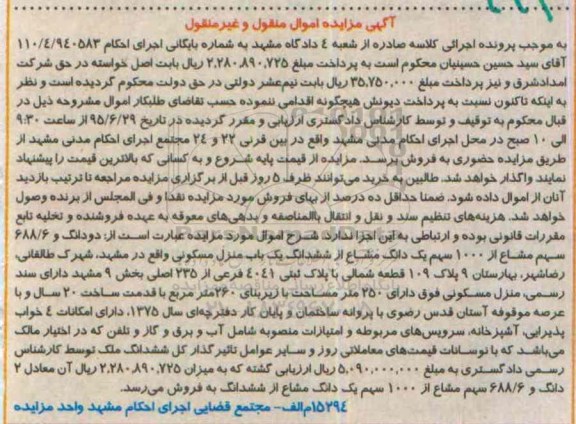 آگهی مزایده اموال منقول و غیرمنقول
به موجب پرونده اجرائی کلاسه صادره از شعبه ٤ دادگاه مشهد به شماره بایگانی اجرای احکام ١١٠/٤/٩٤٠٥٨٣
آقای سید حسین حسینیان محکوم است به پرداخت مبلغ ٢.٢٨٠.٨٩٠.٧٢٥ ریال بابت اصل خواسته در حق شرکت
امدادشرق و نیز پرداخت مبلغ ٣٥,٧٥٠,٠٠٠ ریال بابت نیم‌عشر دولتی در حق دولت محکوم گردیده است و نظر
به اینکه تاکنون نسبت به پرداخت دیونش هیچگونه اقدامی ننموده حسب تقاضای طلبکار اموال مشروحه ذیل در
قبال محکوم به توقیف و توسط کارشناس دادگستری ارزیابی و مقرر گردیده در تاریخ ٩٥/٦/٢٩ از ساعت ٩:٣٠
الی ١٠ صبح در محل اجرای احکام مدنی مشهد واقع در بین قرنی ٢٢ و ٢٤ مجتمع اجرای احکام مدنی مشهد از
طریق مزایده حضوری به فروش برسد. مزایده از قیمت پایه شروع و به کسانی که بالاترین قیمت را پیشنهاد
نمایند واگذار خواهد شد. طالبین به خرید می‌توانند ظرف ٥ روز قبل از برگزاری مزایده مراجعه تا ترتیب بازدید
آنان از اموال داده شود. ضمنا حداقل ده درصد از بهای فروش مورد مزایده نقدا و فی المجلس از برنده وصول
خواهد شد. هزینه‌های تنظیم سند و نقل و انتقال بالمناصفه و بدهی‌های معوقه به عهده فروشنده و تخلیه تابع
مقررات قانونی بوده و ارتباطی به این اجرا ندارد. شرح اموال مورد مزایده عبارت است از: دودانگ و ٦٨٨/٦
سهم مشاع از ١٠٠٠ سهم یک دانگ مشاع از ششدانگ یک باب منزل مسکونی واقع در مشهد، شهرک طالقانی،
رضاشهر، بهارستان ٩ پلاک ١٠٩ قطعه شمالی با پلاک ثبتی ٤٠٤١ فرعی از ٢٣٥ اصلی بخش ٩ مشهد دارای سند
رسمی، منزل مسکونی فوق دارای ٢٥٠ متر مساحت با زیربنای ٢٦٠ متر مربع با قدمت ساخت ٢٠ سال و با
عرصه موقوفه آستان قدس رضوی با پروانه ساختمان و پایان کار دفترچه‌ای سال ١٣٧٥، دارای امکانات ٤ خواب
پذیرایی، آشپزخانه، سرویس‌های مربوطه و امتیازات منصوبه شامل آب و برق و گاز و تلفن که در اختیار مالک
می‌باشد که با نوسانات قیمت‌های معاملاتی روز و سایر عوامل تاثیر گذار کل ششدانگ ملک توسط کارشناس
رسمی دادگستری به مبلغ ٥,٠٩٠,٠٠٠,٠٠٠ ریال ارزیابی گشته که به میزان ٢.٢٨٠.٨٩٠.٧٢٥ ریال آن معادل ٢
دانگ و ٦٨٨/٦ سهم مشاع از ١٠٠٠ سهم یک دانگ مشاع از ششدانگ به فروش می‌رسد.
١٥٢٩٤م‌الف- مجتمع قضایی اجرای احکام مشهد واحد مزایده